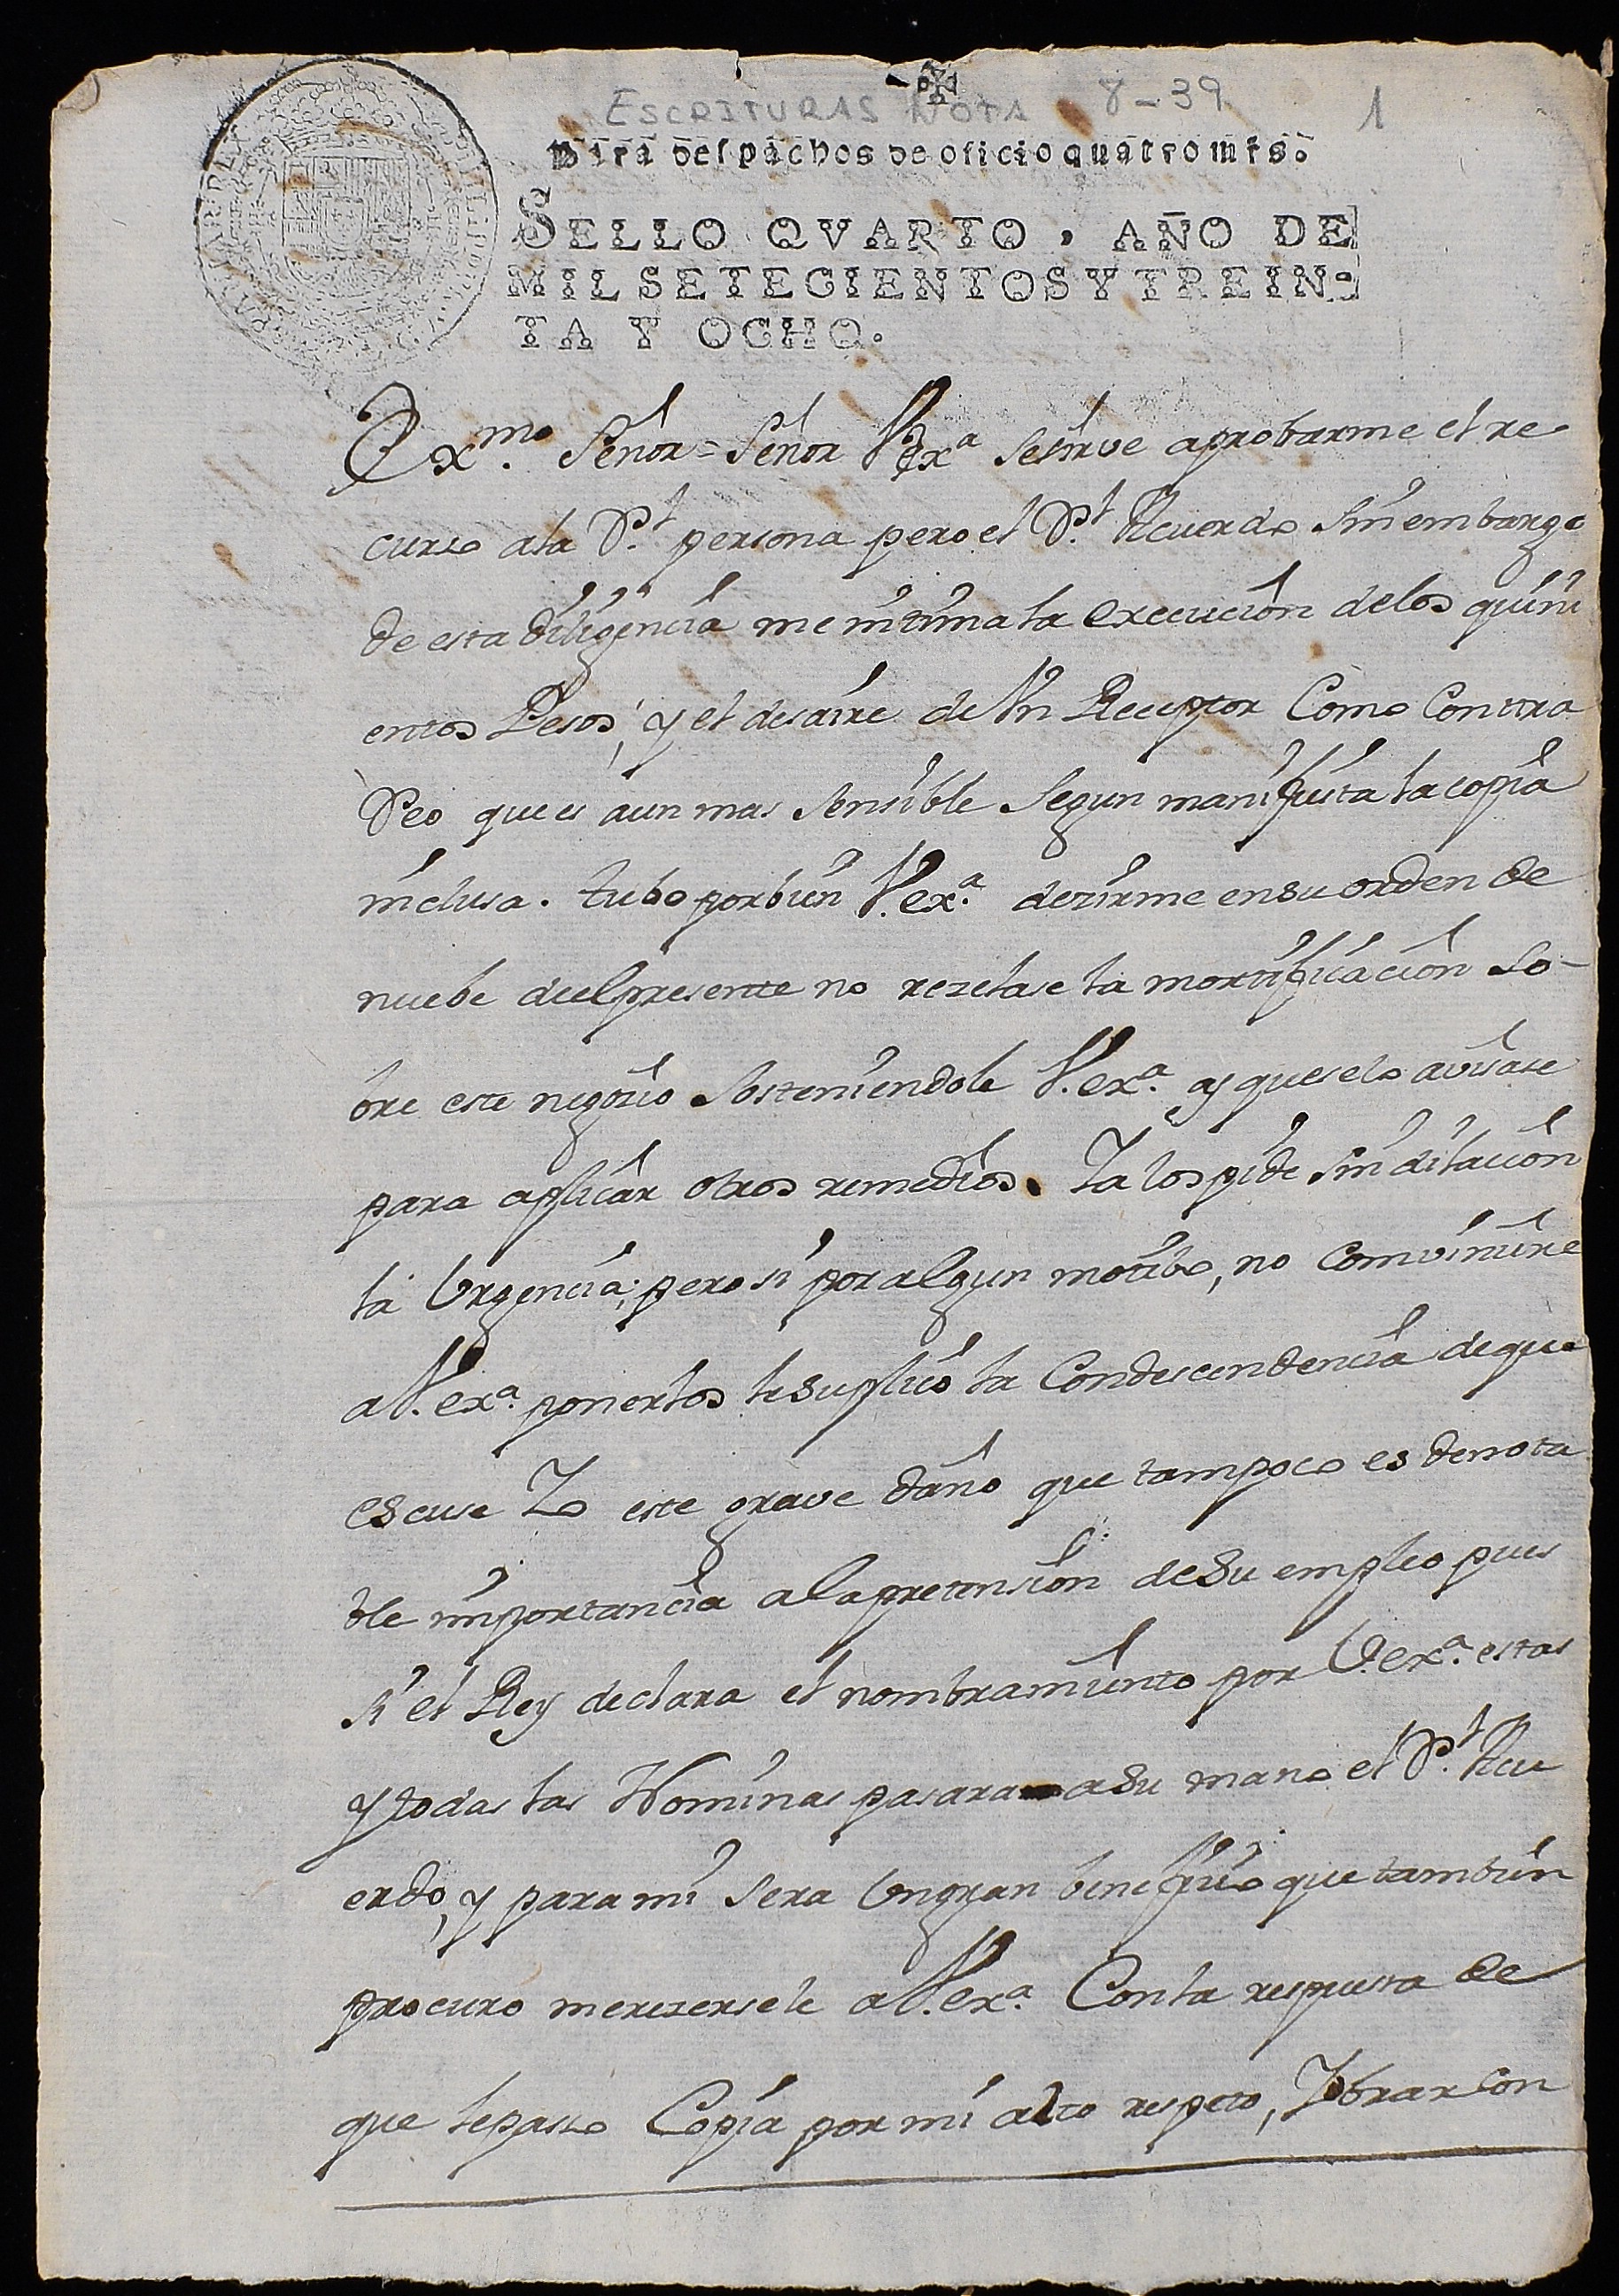 ESCRITURAS NOTA 8-39 1
Para despachos de oficio quatro mrs.
SELLO QVARTO, AÑO DE
MIL SETECIENTOS Y TREIN-
TA Y OCHO.
Exmo. Señor = Señor V.exa se sirve aprobarme el re
curso ala Rl. persona pero el Rl. Acuerdo sin embargo
de esta diligencia me intima la execucion delos quini
entos Pesos, y el desaire de Vn Receptor Como Contra
Reo que es aun mas sensible segun manifiesta la copia
inclusa. tubo por bien V.exa. dezirme en su orden de
nuebe del presente no rezelase la mortificacion so-
bre este negozio sosteniendole V.exa. y que se lo avisase
para aplicar otros remedios. Ya los pide sin dilacion
la Vrgencia; pero si por algun motibo, no combiniere
a V.exa. ponerlos le suplico la Condescendencia de que
escuse Yo este grave daño que tampoco es de nota
ble importancia ala pretension de su empleo pues
si el Rey declara el nombramiento por V.exa. estas
y todas las Nominas pasara a su mano el Rl. Acu
erdo, y para mi sera Vn gran beneficio que tambien
procuro merezersele a V.exa. Con la respuesta de
que le passo Copia por mi alto respeto, Y obrar con